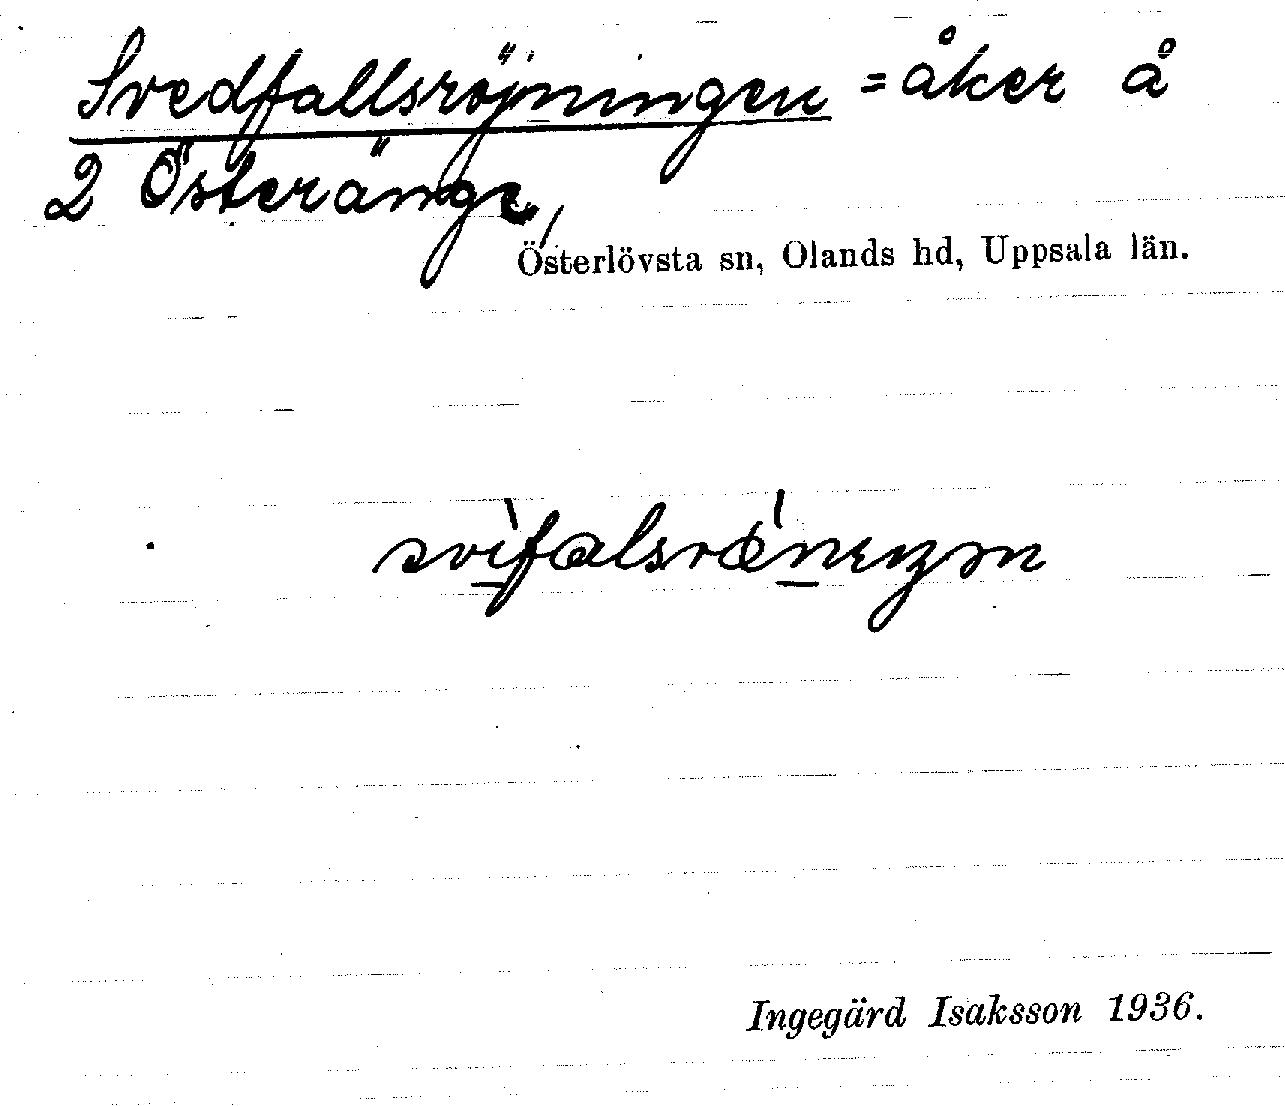 Svedfallsröjningen = åker å
2 Österänge,
Österlövsta sn, Olands hd, Uppsala län.
Ingegärd Isaksson 1936.